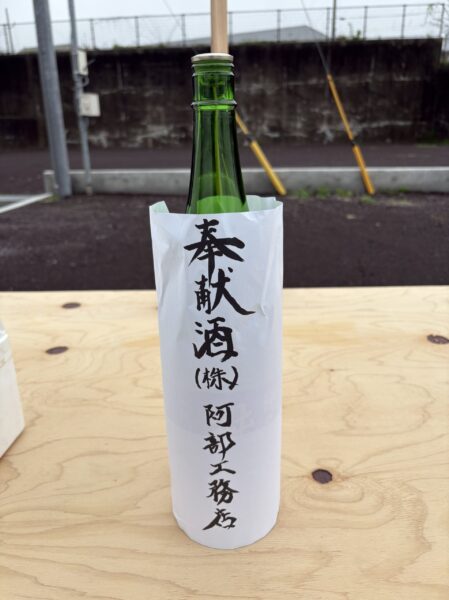 奉献酒
(株)阿部工務店